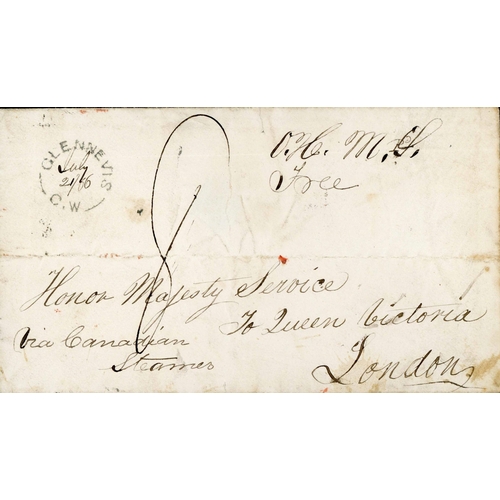 GLENNEVIS
July
C.W
8
O.H.M.S.
Free
Honor Majesty Service
To Queen Victoria
Via Canadian
Steamer
London